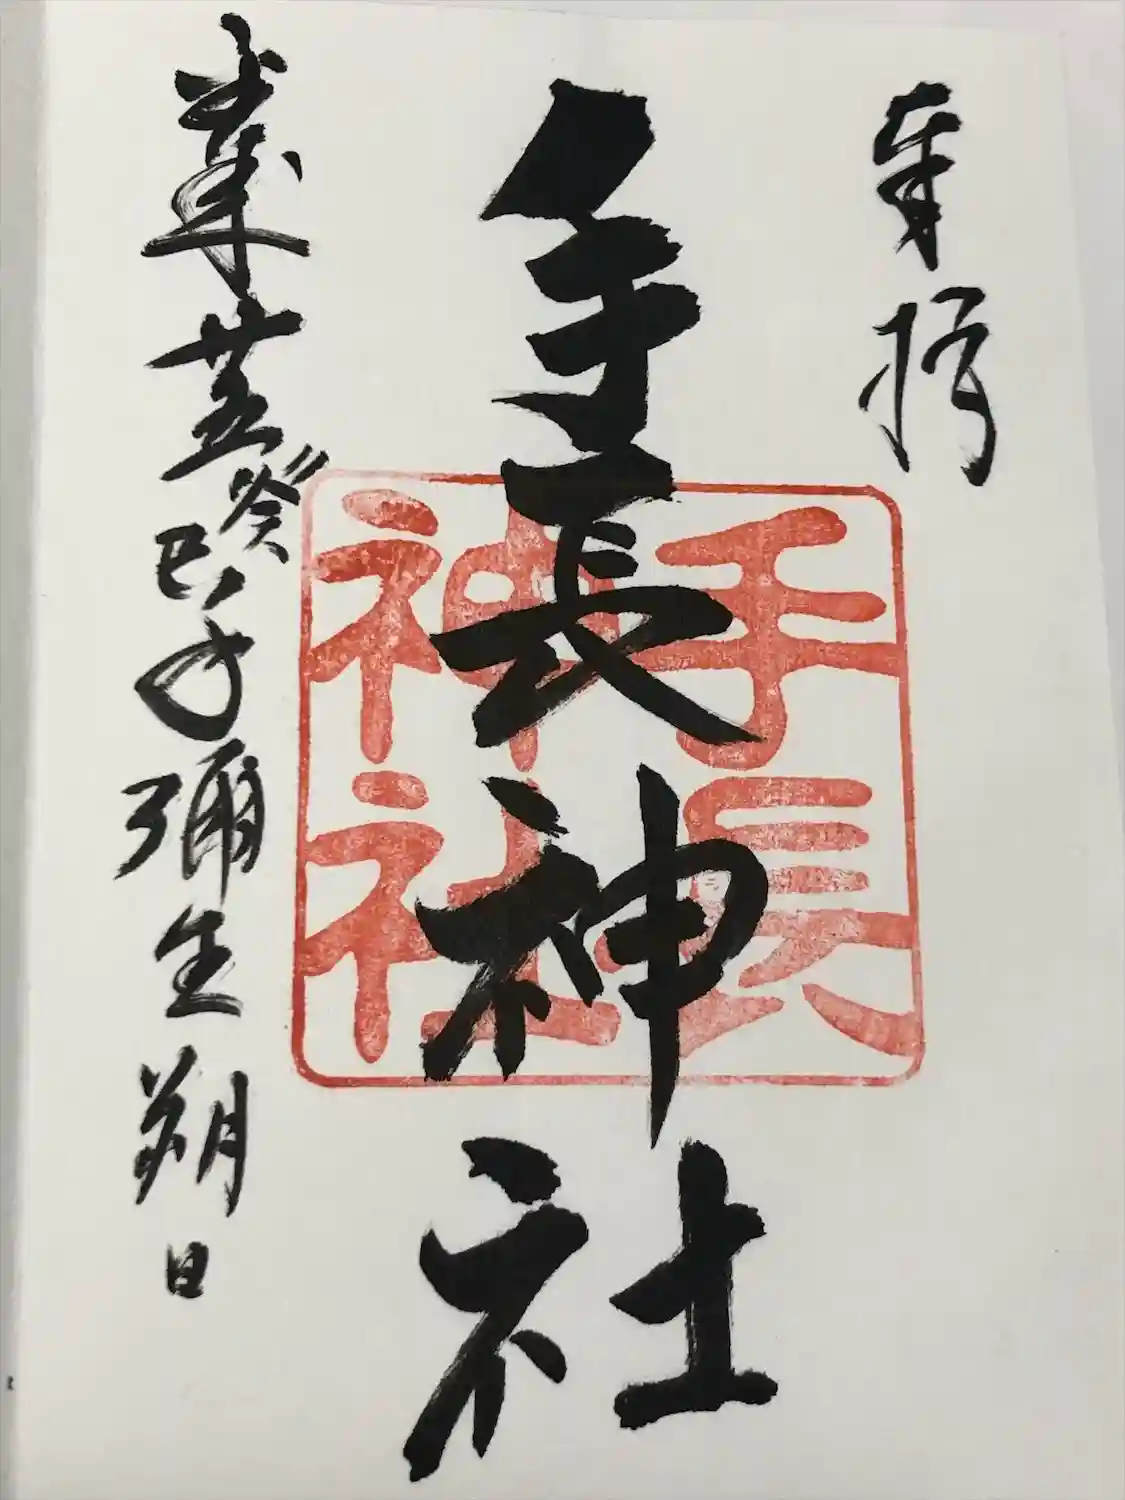 奉拝
手長神社
平成廿五癸巳年彌生朔日
手長
神社